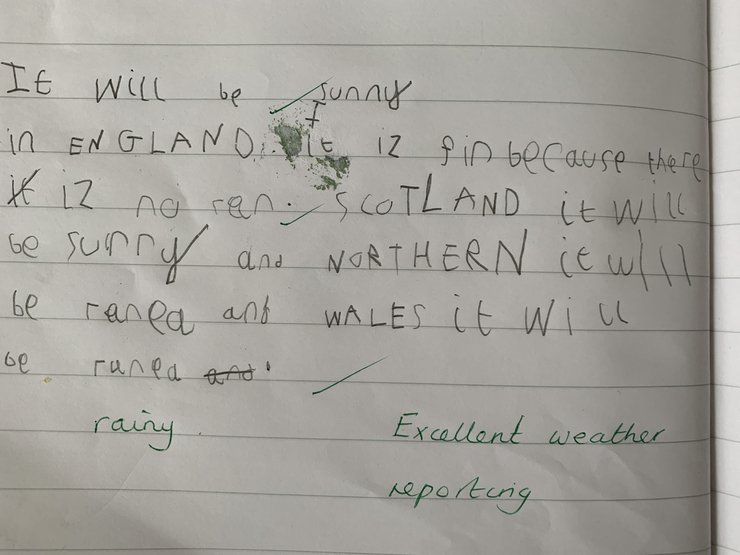 It will be sunny
in ENGLAND. It iz fin because there
it iz no ran. SCOTLAND it will
be sunny and NORTHERN it will
be ranea and WALES it will
be ranea and.
rainy. Excellent weather
reporting